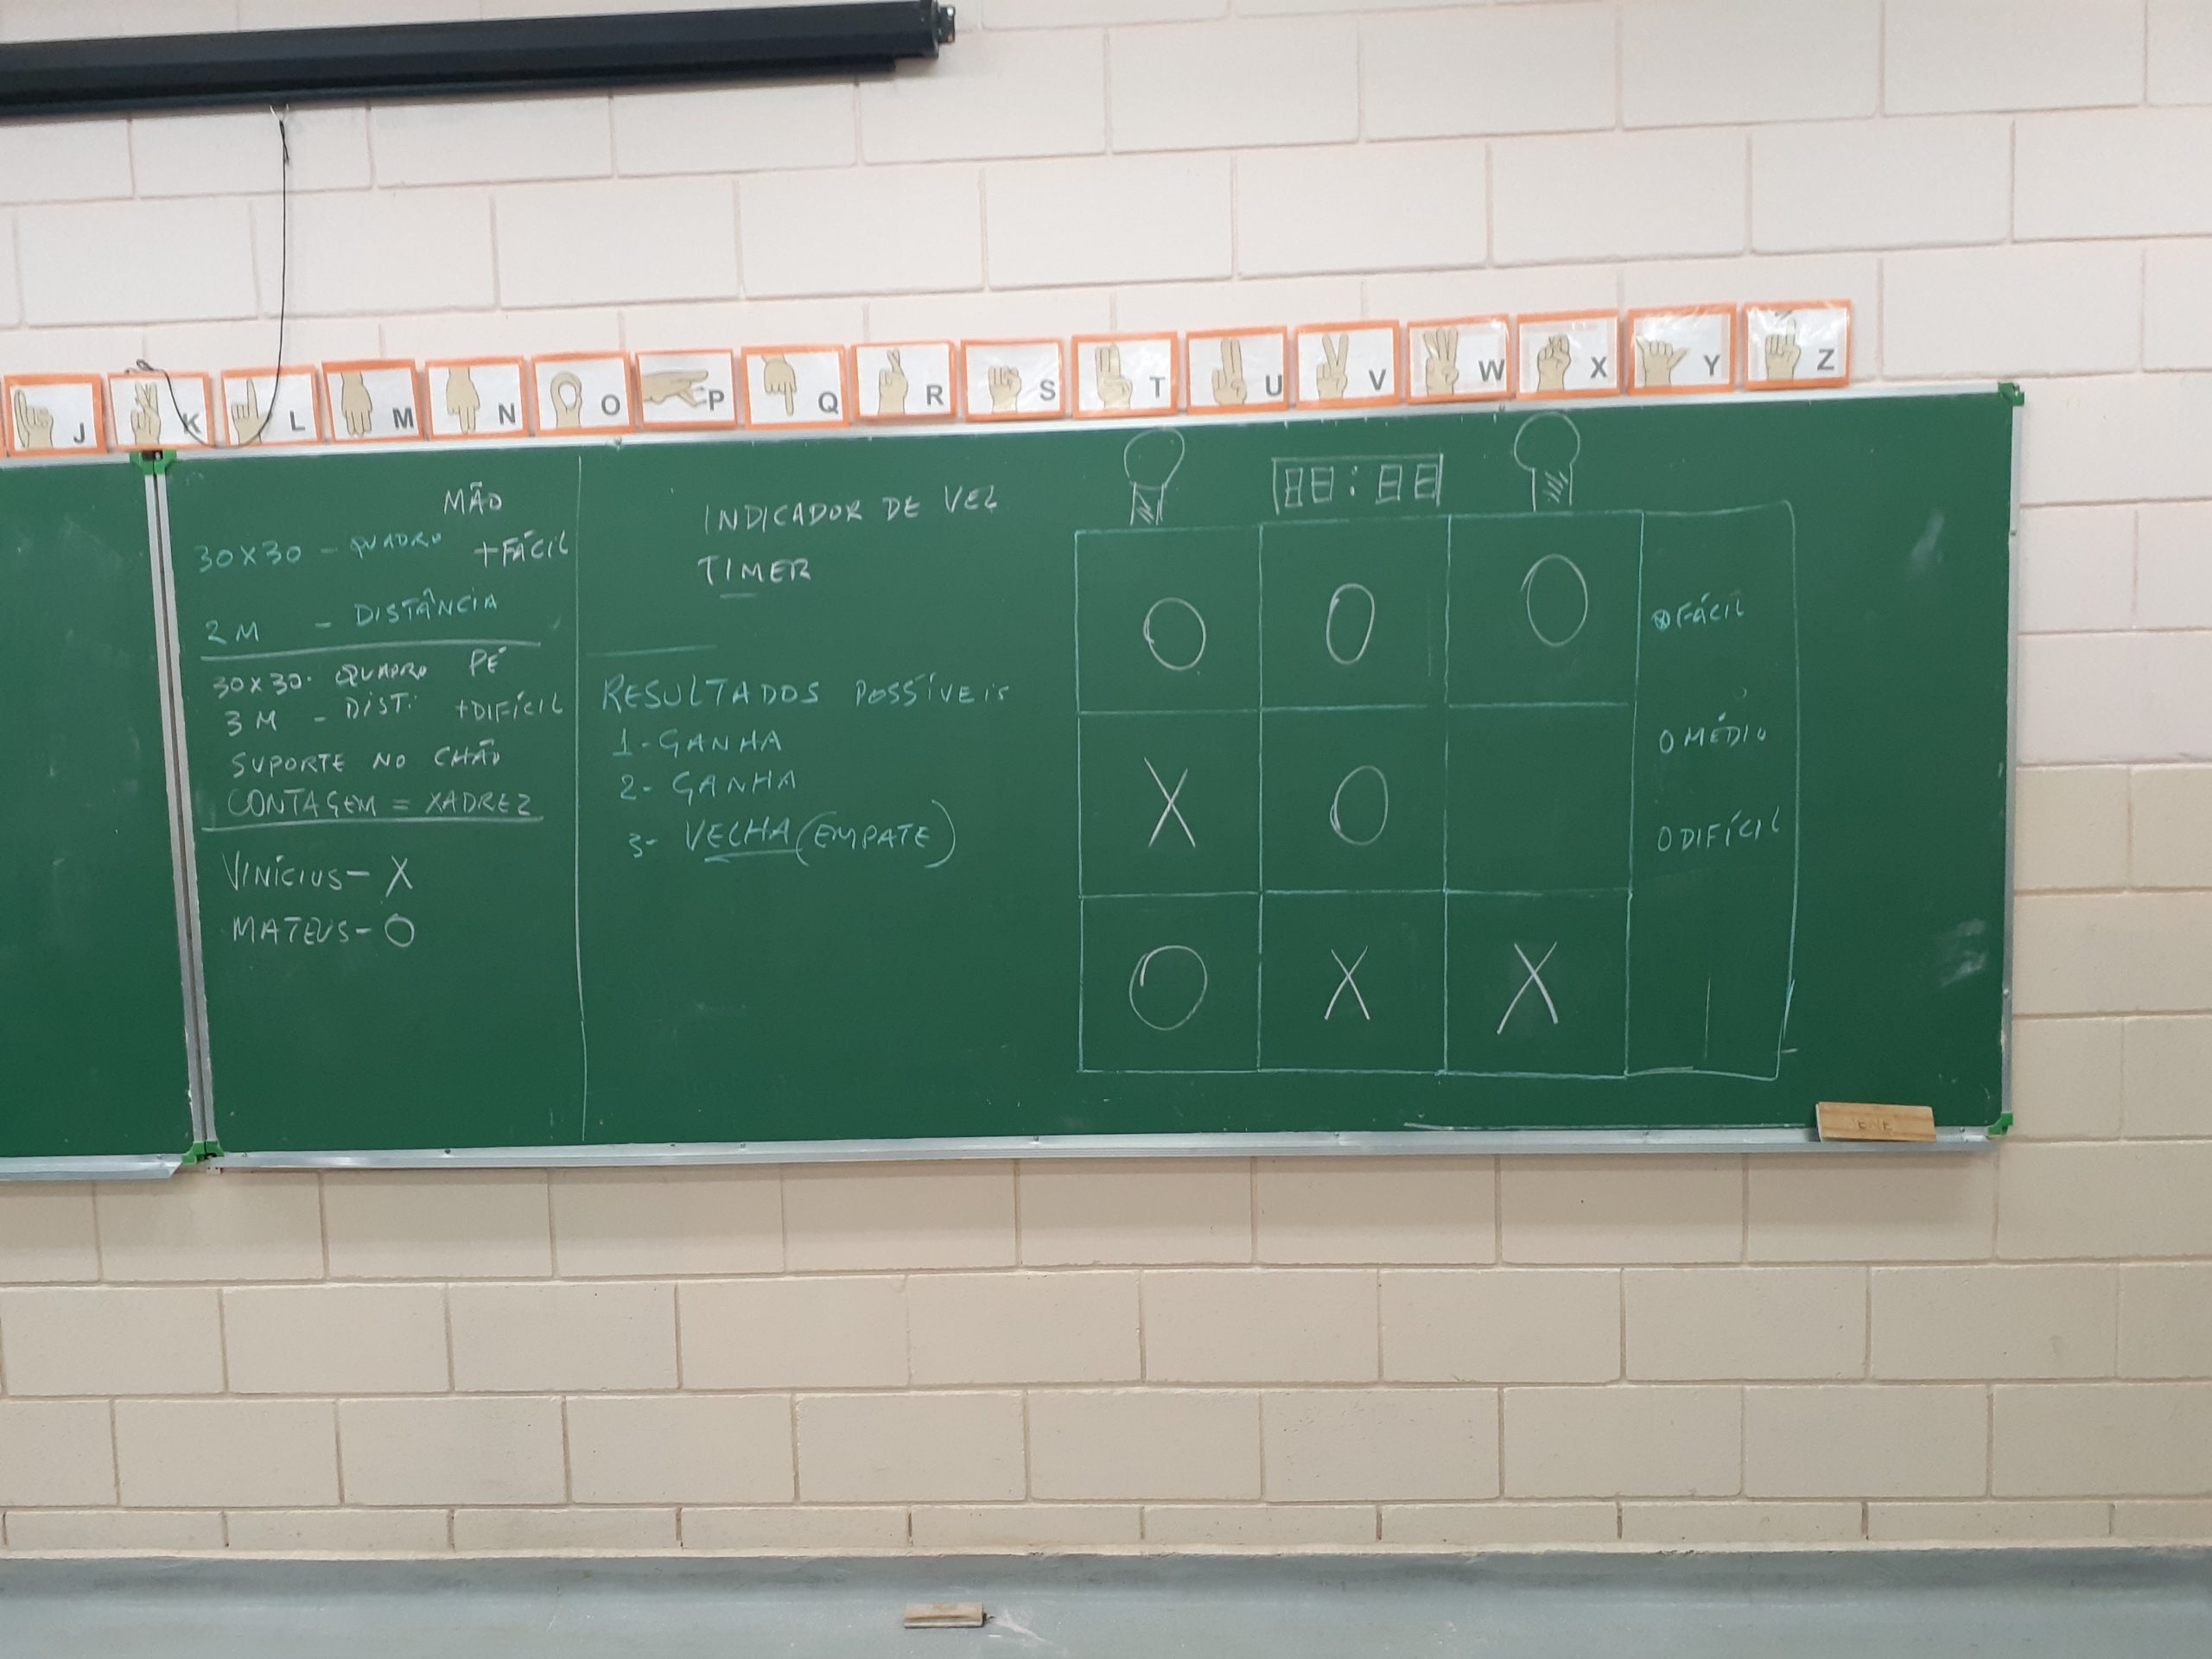 J K L M N O P Q R S T U V W X Y Z
MÃO
30X30 - QUADRO +FÁCIL
2M - DISTÂNCIA
30X30. QUADRO PÉ
3M - DIST: +DIFÍCIL
SUPORTE NO CHÃO
CONTAGEM = XADREZ
VINÍCIUS - X
MATEUS - O
INDICADOR DE VEZ
TIMER
RESULTADOS POSSÍVEIS
1- GANHA
2- GANHA
3- VELHA (EMPATE)
88:88
O O O
X O
O X X
FÁCIL
O MÉDIO
O DIFÍCIL
ENE